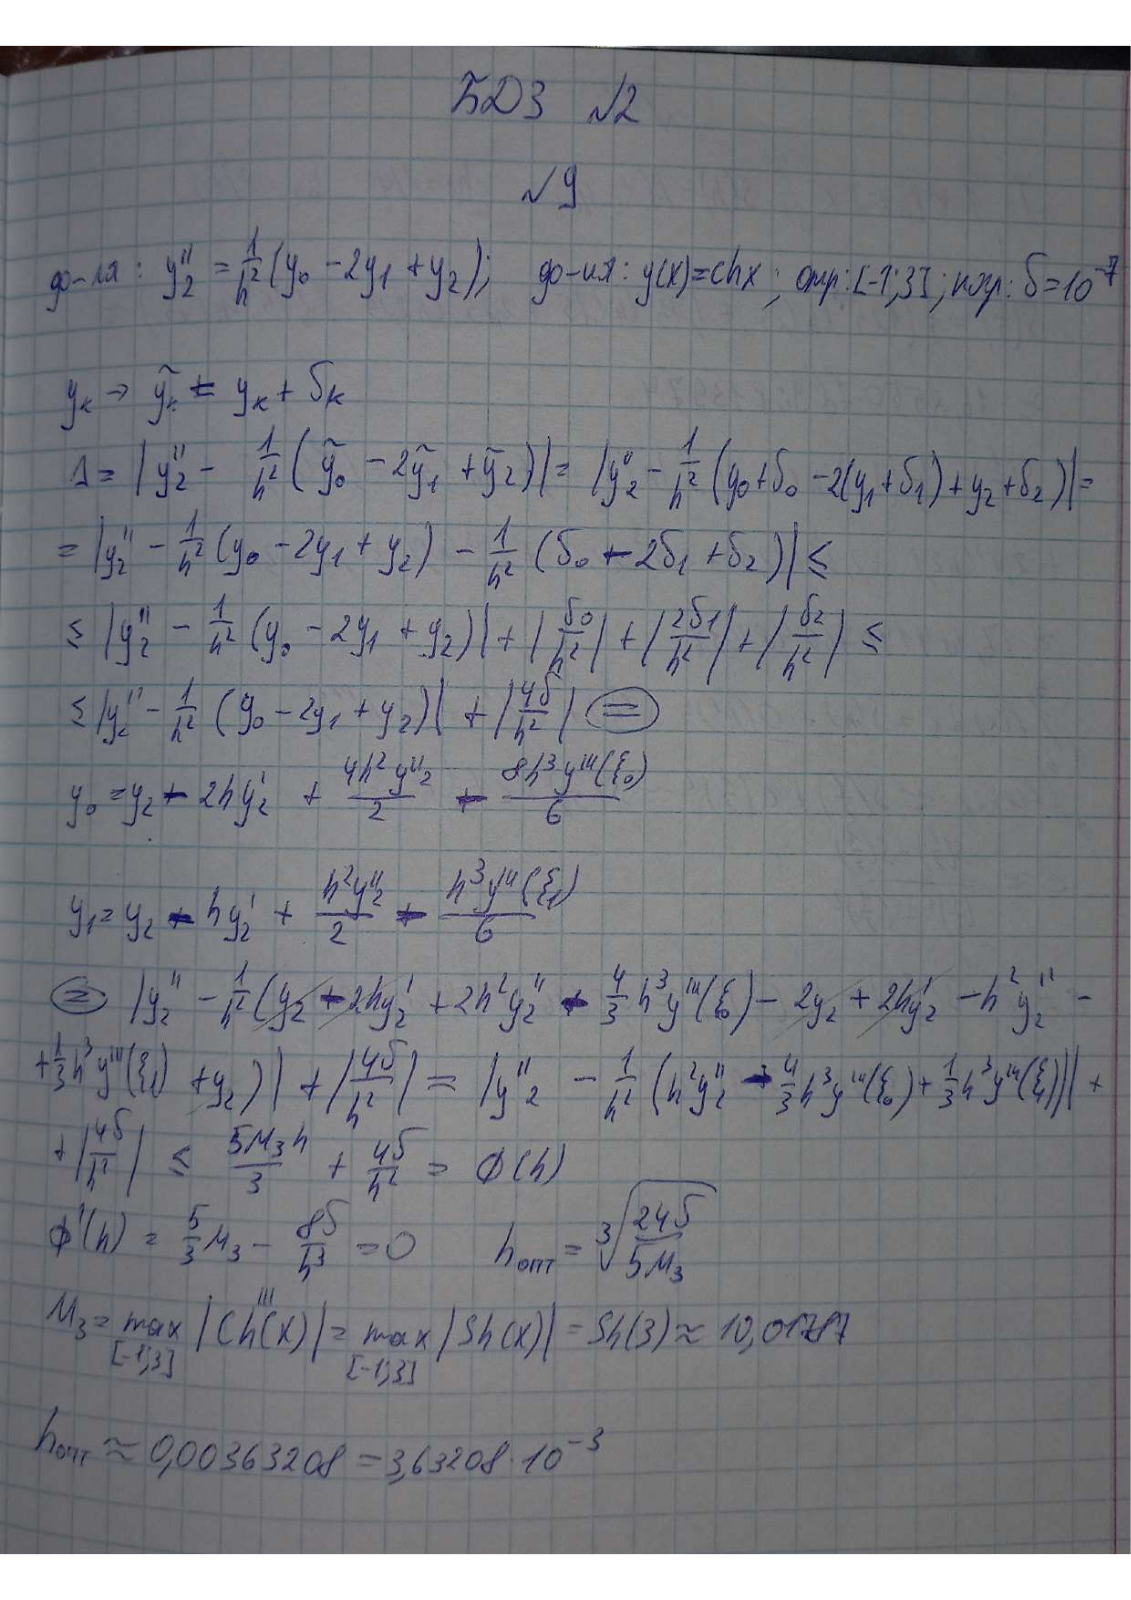 БДЗ №2
№9
ф-ла: y₂'' = 1/h² (y₀ - 2y₁ + y₂); ф-ия: y(x)=chx; отр: [-1;3]; погр: δ=10⁻⁷
yₖ → ỹₖ = yₖ + δₖ
Δ = |y₂'' - 1/h² (ỹ₀ - 2ỹ₁ + ỹ₂)| = |y₂'' - 1/h² (y₀+δ₀ - 2(y₁+δ₁) + y₂+δ₂)| =
= |y₂'' - 1/h² (y₀ - 2y₁ + y₂) - 1/h² (δ₀ - 2δ₁ + δ₂)| ≤
≤ |y₂'' - 1/h² (y₀ - 2y₁ + y₂)| + |δ₀/h²| + |2δ₁/h²| + |δ₂/h²| ≤
≤ |y₂'' - 1/h² (y₀ - 2y₁ + y₂)| + |4δ/h²| (=)
y₀ = y₂ - 2hy₂' + 4h²y''₂/2 - 8h³y'''(ξ₀)/6
y₁ = y₂ - hy₂' + h²y₂''/2 - h³y'''(ξ₁)/6
(=) |y₂'' - 1/h² (y₂ - 2hy₂' + 2h²y₂'' - 4/3 h³y'''(ξ₀) - 2y₂ + 2hy₂' - h²y₂'' -
+ 1/3 h³y'''(ξ₁) + y₂)| + |4δ/h²| = |y''₂ - 1/h² (h²y₂'' - 4/3 h³y'''(ξ₀) + 1/3 h³y'''(ξ₁))| +
+ |4δ/h²| ≤ 5M₃h/3 + 4δ/h² = ϕ(h)
ϕ'(h) = 5/3 M₃ - 8δ/h³ = 0 hопт = ∛(24δ/5M₃)
M₃ = max[-1;3] |Ch'''(x)| = max[-1;3] |Sh(x)| = Sh(3) ≈ 10,01787
hопт ≈ 0,00363208 = 3,63208·10⁻³